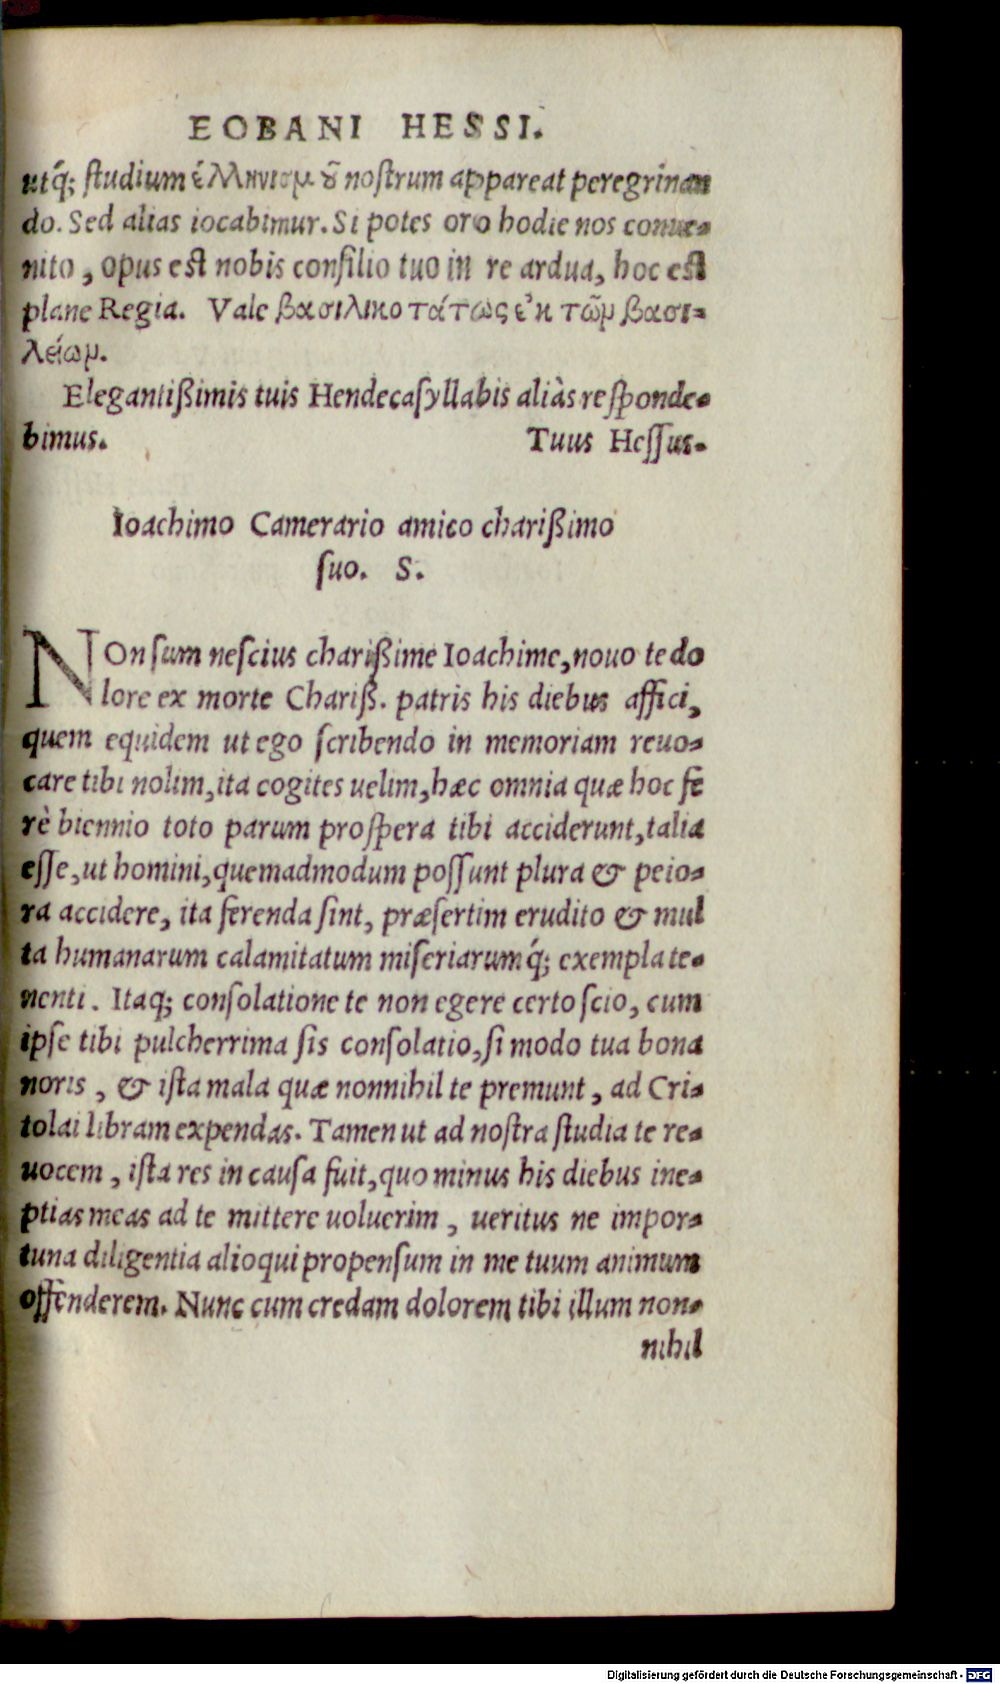 EOBANI HESSI.
utq́; studium ἑλληνισμȣ͂ nostrum appareat peregrinan
do. Sed alias iocabimur. Si potes oro hodie nos conue-
nito, opus est nobis consilio tuo in re ardua, hoc est
plane Regia. Vale βασιλικοτάτως ἐκ τῶν βασι-
λείων.
Elegantißimis tuis Hendecasyllabis aliàs responde-
bimus. Tuus Hessus.
Ioachimo Camerario amico charißimo
suo. S.
NOn sum nescius charißime Ioachime, nouo te do
lore ex morte Chariß. patris his diebus affici,
quem equidem ut ego scribendo in memoriam reuo-
care tibi nolim, ita cogites uelim, hæc omnia quæ hoc fe
rè biennio toto parum prospera tibi acciderunt, talia
esse, ut homini, quemadmodum possunt plura & peio-
ra accidere, ita ferenda sint, præsertim erudito & mul
ta humanarum calamitatum miseriarumq́; exempla te-
nenti. Itaq; consolatione te non egere certo scio, cum
ipse tibi pulcherrima sis consolatio, si modo tua bona
noris, & ista mala quæ nonnihil te premunt, ad Cri-
tolai libram expendas. Tamen ut ad nostra studia te re-
uocem, ista res in causa fuit, quo minus his diebus ine-
ptias meas ad te mittere uoluerim, ueritus ne impor-
tuna diligentia alioqui propensum in me tuum animum
offenderem. Nunc cum credam dolorem tibi illum non-
nihil
Digitalisierung gefördert durch die Deutsche Forschungsgemeinschaft - DFG